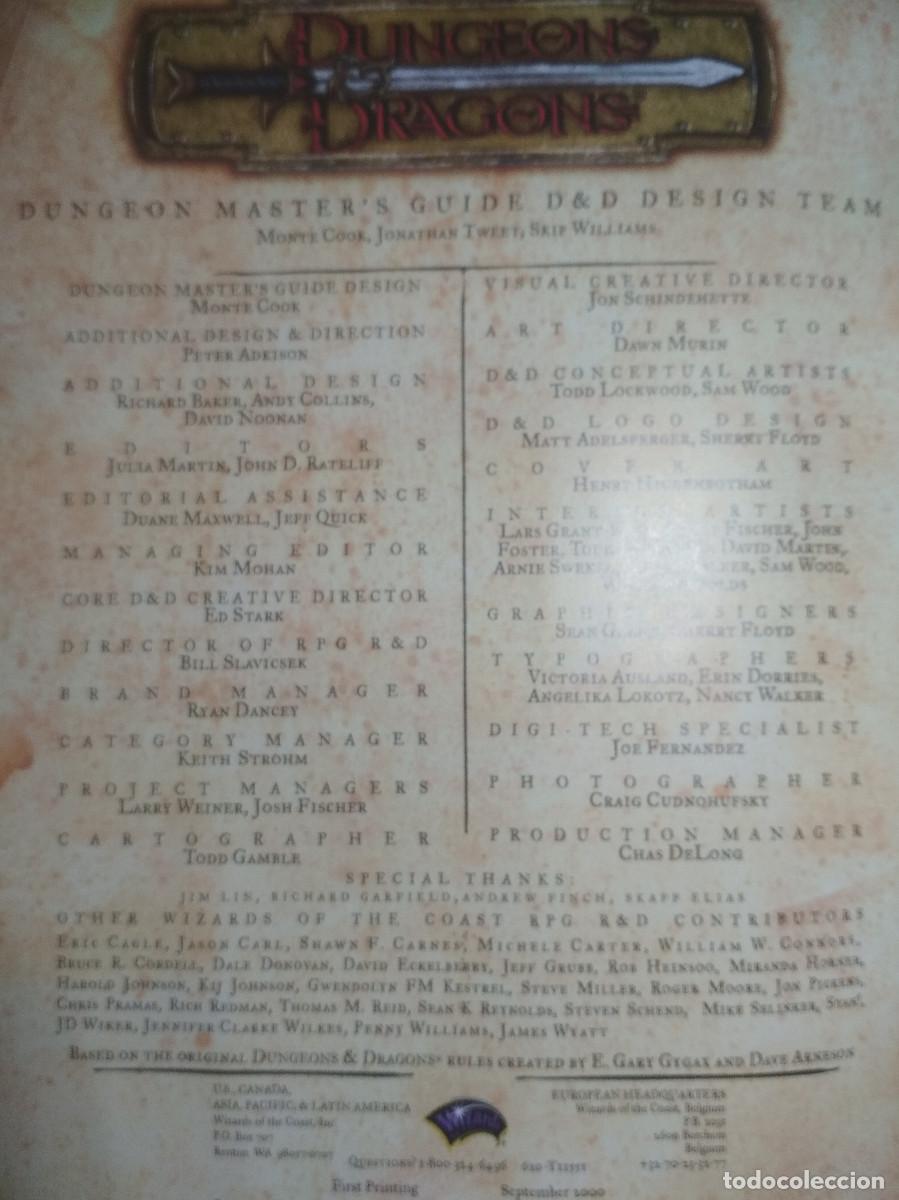 DUNGEONS
&
DRAGONS
DUNGEON MASTER'S GUIDE D&D DESIGN TEAM
MONTE COOK, JONATHAN TWEET, SKIP WILLIAMS
DUNGEON MASTER'S GUIDE DESIGN
MONTE COOK
ADDITIONAL DESIGN & DIRECTION
PETER ADKISON
ADDITIONAL DESIGN
RICHARD BAKER, ANDY COLLINS,
DAVID NOONAN
EDITORS
JULIA MARTIN, JOHN D. RATELIFF
EDITORIAL ASSISTANCE
DUANE MAXWELL, JEFF QUICK
MANAGING EDITOR
KIM MOHAN
CORE D&D CREATIVE DIRECTOR
ED STARK
DIRECTOR OF RPG R&D
BILL SLAVICSEK
BRAND MANAGER
RYAN DANCEY
CATEGORY MANAGER
KEITH STROHM
PROJECT MANAGERS
LARRY WEINER, JOSH FISCHER
CARTOGRAPHER
TODD GAMBLE
VISUAL CREATIVE DIRECTOR
JON SCHINDEHETTE
ART DIRECTOR
DAWN MURIN
D&D CONCEPTUAL ARTISTS
TODD LOCKWOOD, SAM WOOD
D&D LOGO DESIGN
MATT ADELSPERGER, SHERRY FLOYD
COVER ART
HENRY HIGGENBOTHAM
INTERIOR ARTISTS
LARS GRANT FISCHER, JOHN
FOSTER, DAVID MARTIN,
ARNIE SAM WOOD,
GRAPHIC DESIGNERS
SEAN SHERRY FLOYD
TYPOGRAPHERS
VICTORIA AUSLAND, ERIN DORRIES,
ANGELIKA LOKOTZ, NANCY WALKER
DIGI-TECH SPECIALIST
JOE FERNANDEZ
PHOTOGRAPHER
CRAIG CUDNOHUFSKY
PRODUCTION MANAGER
CHAS DELONG
SPECIAL THANKS:
JIM LIN, RICHARD GARFIELD, ANDREW FINCH, SKAFF ELIAS
OTHER WIZARDS OF THE COAST RPG R&D CONTRIBUTORS
ERIC CAGLE, JASON CARL, SHAWN F. CARNES, MICHELE CARTER, WILLIAM W. CONNORS,
BRUCE R. CORDELL, DALE DONOVAN, DAVID ECKELBERRY, JEFF GRUBB, ROB HEINSOO, MIRANDA HORNER,
HAROLD JOHNSON, KIJ JOHNSON, GWENDOLYN FM KESTREL, STEVE MILLER, ROGER MOORE, JON PICKENS,
CHRIS PRAMAS, RICH REDMAN, THOMAS M. REID, SEAN K REYNOLDS, STEVEN SCHEND, MIKE SELINKER,
JD WIKER, JENNIFER CLARKE WILKES, PENNY WILLIAMS, JAMES WYATT
BASED ON THE ORIGINAL DUNGEONS & DRAGONS® RULES CREATED BY E. GARY GYGAX AND DAVE ARNESON
U.S., CANADA,
ASIA, PACIFIC, & LATIN AMERICA
Wizards of the Coast, Inc.
P.O. Box 707
Renton WA 98057-0707
EUROPEAN HEADQUARTERS
Wizards of the Coast, Belgium
P.B. 2031
2600 Berchem
Belgium
+32-70-23-32-77
QUESTIONS? 1-800-324-6496
620-T11551
First Printing
September 2000
todocoleccion